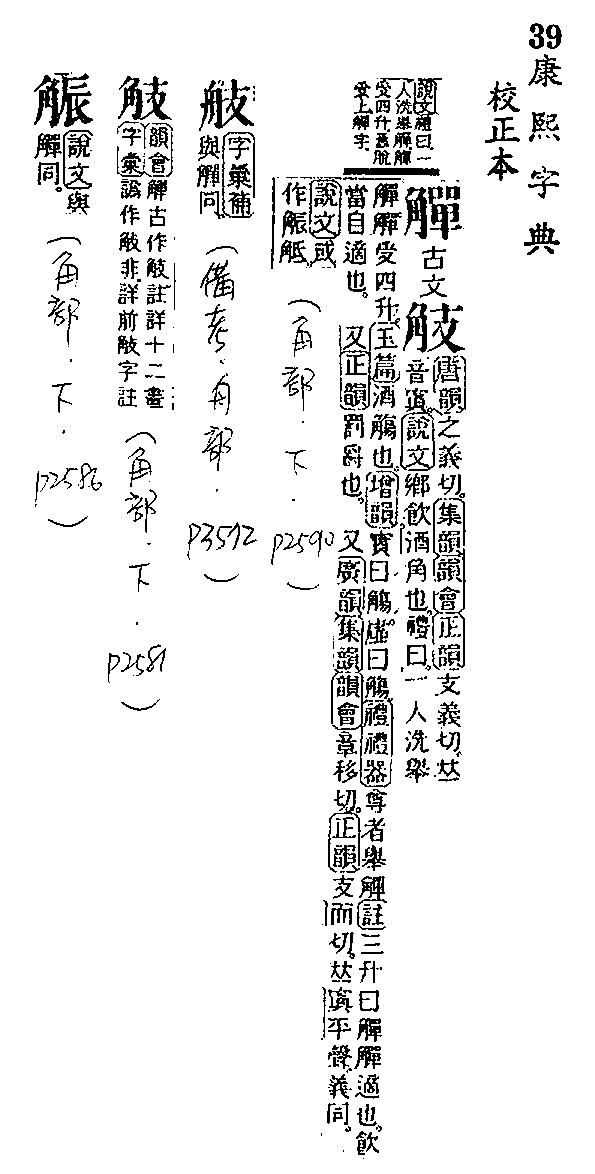 39
康熙字典
校正本
說文禮曰一
人洗舉觶觶
受四升舊脫
觶 古文 𧣨
唐韻之義切集韻韻會正韻支義切𠀤
音寘說文鄉飲酒角也禮曰一人洗舉
觶觶受四升玉篇酒觴也增韻實曰觴虛曰觶禮禮器尊者舉觶註三升曰觶觶適也飲
當自適也 又正韻罰爵也 又廣韻集韻韻會章移切正韻支而切𠀤寘平聲義同
說文或
作觗
(角部.下.
p2590)
字彙補
與觶同
(備考.角部.
p3512)
韻會觶古作𧣨註詳十二畫
字彙譌作𧣨非詳前𧣨字註
(角部.下.
p2581)
說文與
觶同。
(角部.下.
p2586)